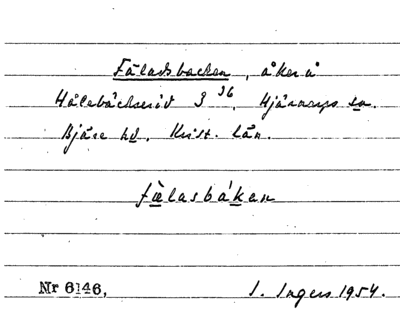 Fäladsbacken, åker å
Hålebäckseröd 3 36, Hjärnarps sn.
Bjäre hd. Krist. län.
fälasbákan
Nr 6146, I. Ingers 1954.